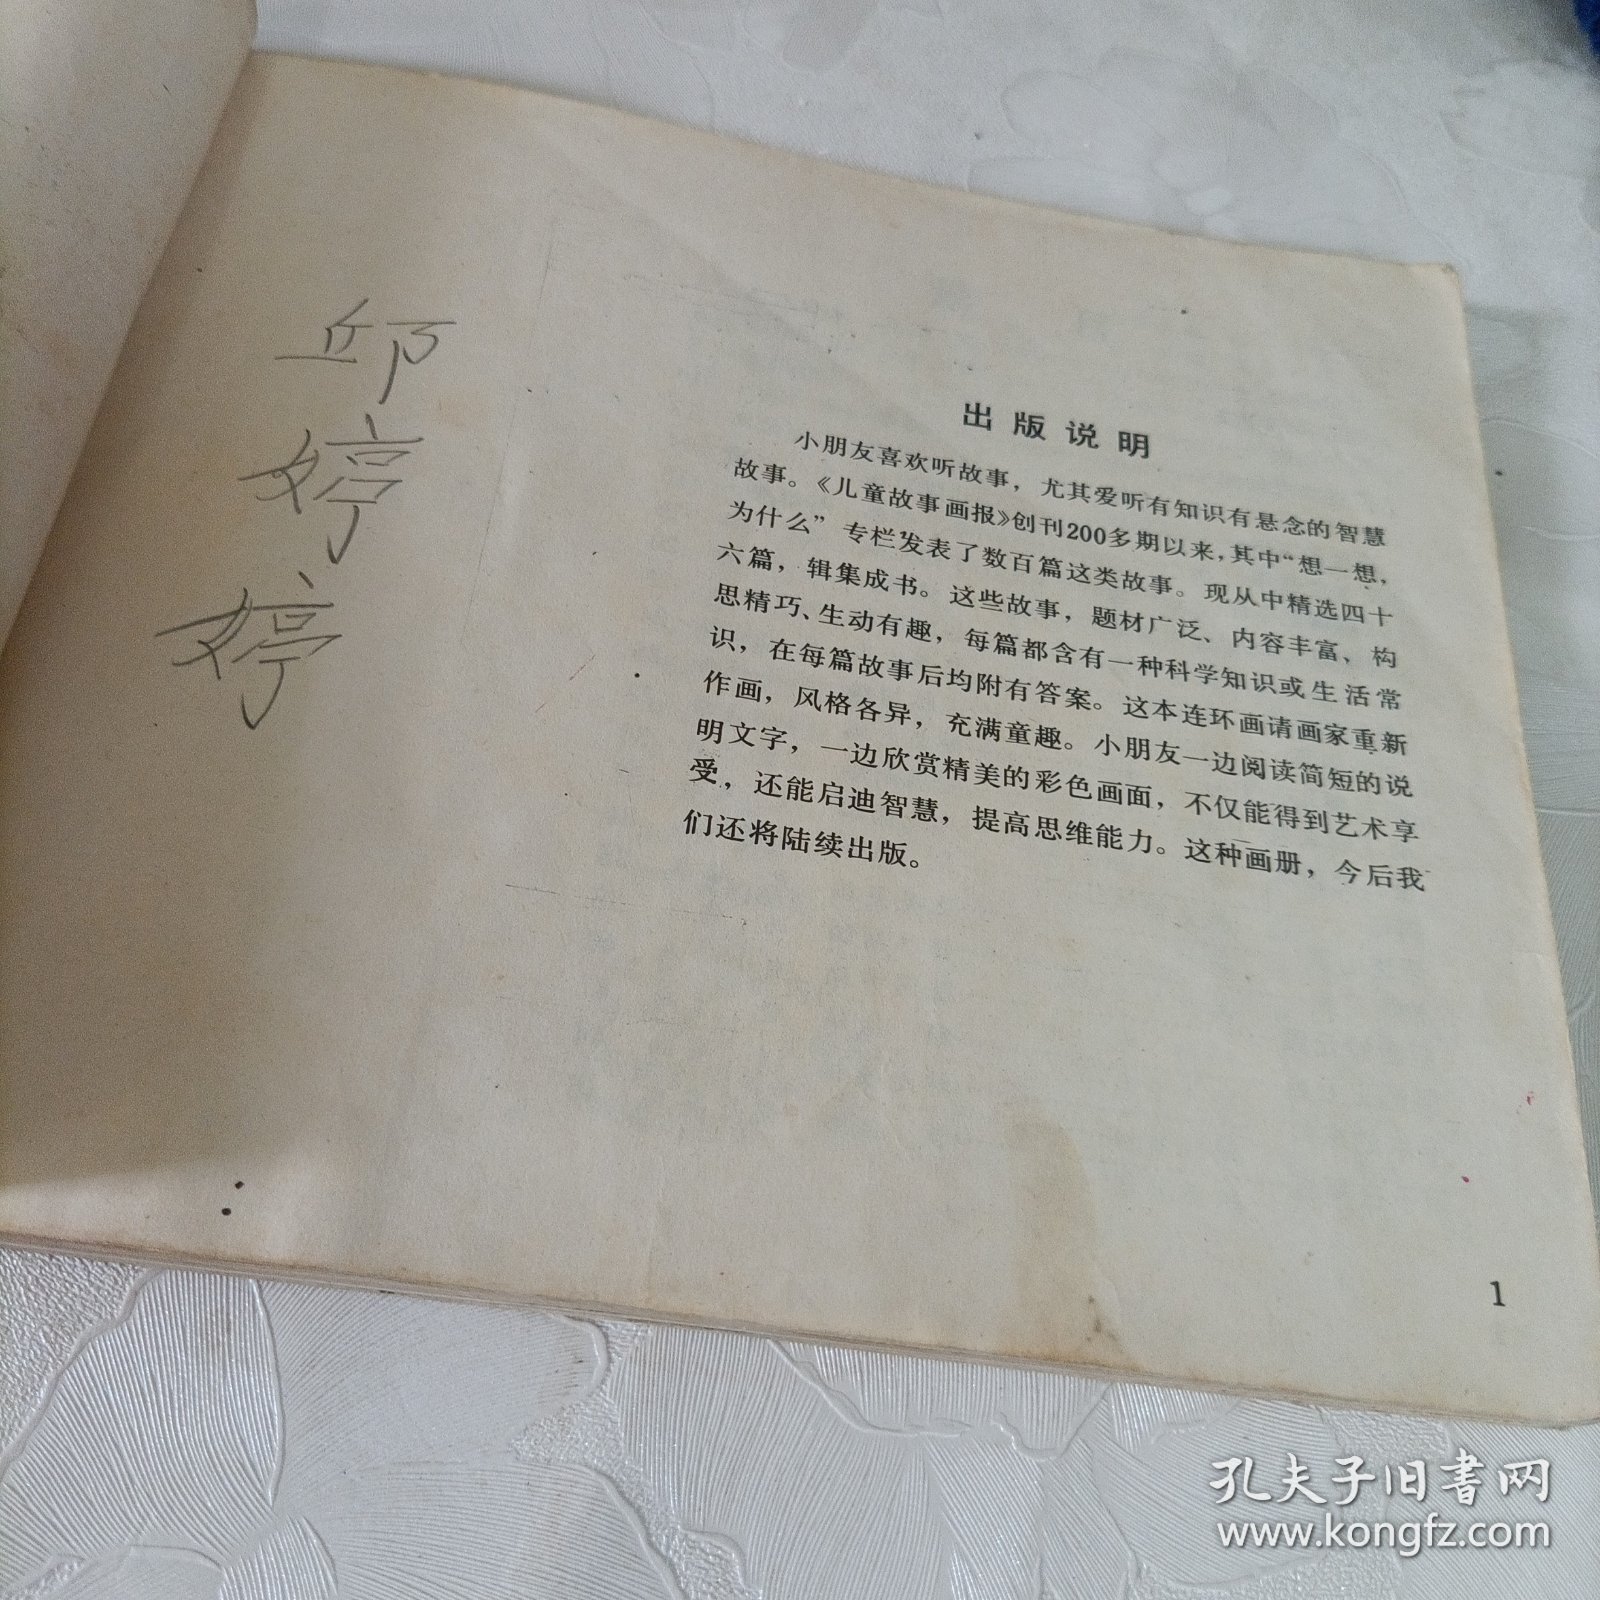 邱
婷
婷
出版说明
小朋友喜欢听故事，尤其爱听有知识有悬念的智慧
故事。《儿童故事画报》创刊200多期以来，其中“想一想，
为什么”专栏发表了数百篇这类故事。现从中精选四十
六篇，辑集成书。这些故事，题材广泛、内容丰富、构
思精巧、生动有趣，每篇都含有一种科学知识或生活常
识，在每篇故事后均附有答案。这本连环画请画家重新
作画，风格各异，充满童趣。小朋友一边阅读简短的说
明文字，一边欣赏精美的彩色画面，不仅能得到艺术享
受，还能启迪智慧，提高思维能力。这种画册，今后我
们还将陆续出版。
1
孔夫子旧书网
www.kongfz.com